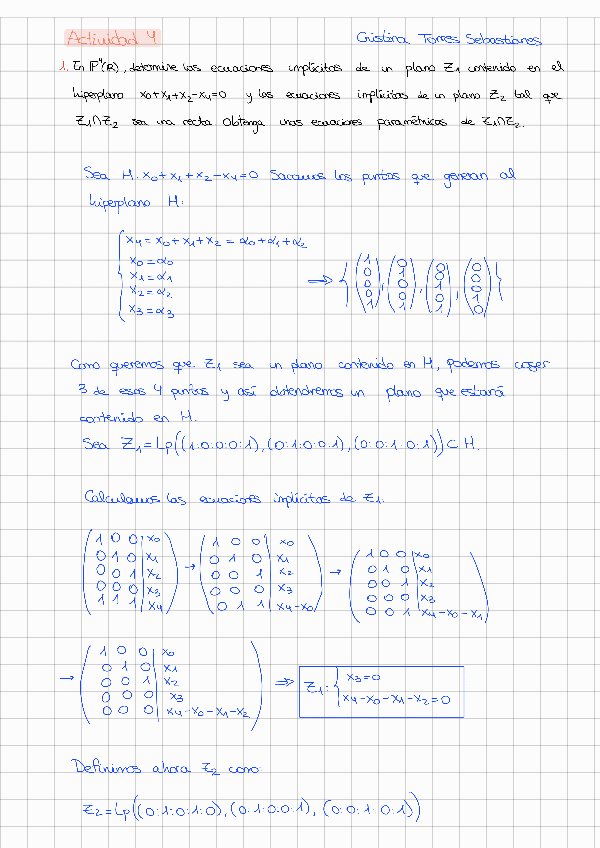 Actividad 4
Cristina Torres Sebastianes
1. En P⁴(R), determine las ecuaciones implícitas de un plano Z₁ contenido en el
hiperplano x₀+x₁+x₂-x₄=0 y las ecuaciones implícitas de un plano Z₂ tal que
Z₁∩Z₂ sea una recta. Obtenga unas ecuaciones paramétricas de Z₁∩Z₂.
Sea H: x₀+x₁+x₂-x₄=0 Sacamos los puntos que generan al
hiperplano H:
{ x₄=x₀+x₁+x₂=α₀+α₁+α₂
x₀=α₀
x₁=α₁
x₂=α₂
x₃=α₃
⟹ { (1 0 0 0 1), (0 1 0 0 1), (0 0 1 0 1), (0 0 0 1 0) }
Como queremos que Z₁ sea un plano contenido en H, podemos coger
3 de esos 4 puntos y así obtendremos un plano que estará
contenido en H.
Sea Z₁=Lp((1:0:0:0:1),(0:1:0:0:1),(0:0:1:0:1))⊂H.
Calculamos las ecuaciones implícitas de Z₁.
(1 0 0 | x₀
0 1 0 | x₁
0 0 1 | x₂
0 0 0 | x₃
1 1 1 | x₄)
→ (1 0 0 | x₀
0 1 0 | x₁
0 0 1 | x₂
0 0 0 | x₃
0 1 1 | x₄-x₀)
→ (1 0 0 | x₀
0 1 0 | x₁
0 0 1 | x₂
0 0 0 | x₃
0 0 1 | x₄-x₀-x₁)
→ (1 0 0 | x₀
0 1 0 | x₁
0 0 1 | x₂
0 0 0 | x₃
0 0 0 | x₄-x₀-x₁-x₂)
⟹ Z₁: { x₃=0
x₄-x₀-x₁-x₂=0
Definimos ahora Z₂ como:
Z₂=Lp((0:1:0:1:0),(0:1:0:0:1),(0:0:1:0:1))